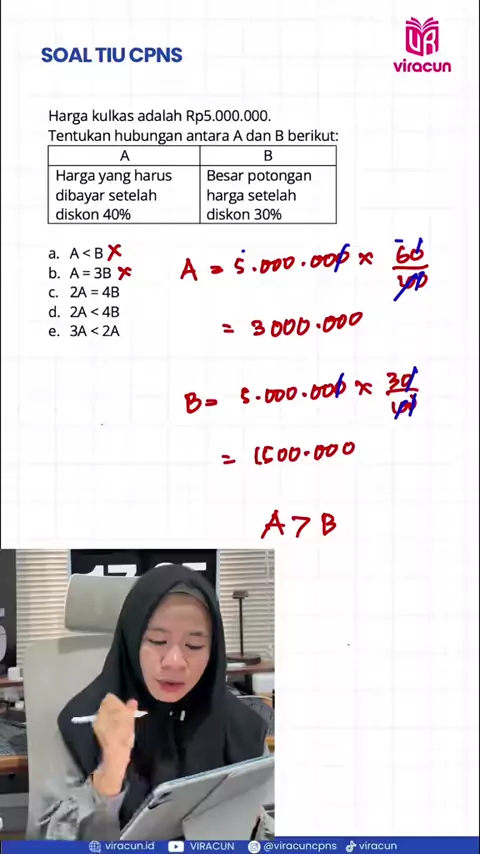 SOAL TIU CPNS
VR
viracun
Harga kulkas adalah Rp5.000.000.
Tentukan hubungan antara A dan B berikut:
A
B
Harga yang harus
dibayar setelah
diskon 40%
Besar potongan
harga setelah
diskon 30%
a. A < B x
b. A = 3B x
c. 2A = 4B
d. 2A < 4B
e. 3A < 2A
A = 5.000.000 x 60/100
= 3000.000
B = 5.000.000 x 30/100
= 1500.000
A > B
viracun.id VIRACUN @viracuncpns viracun